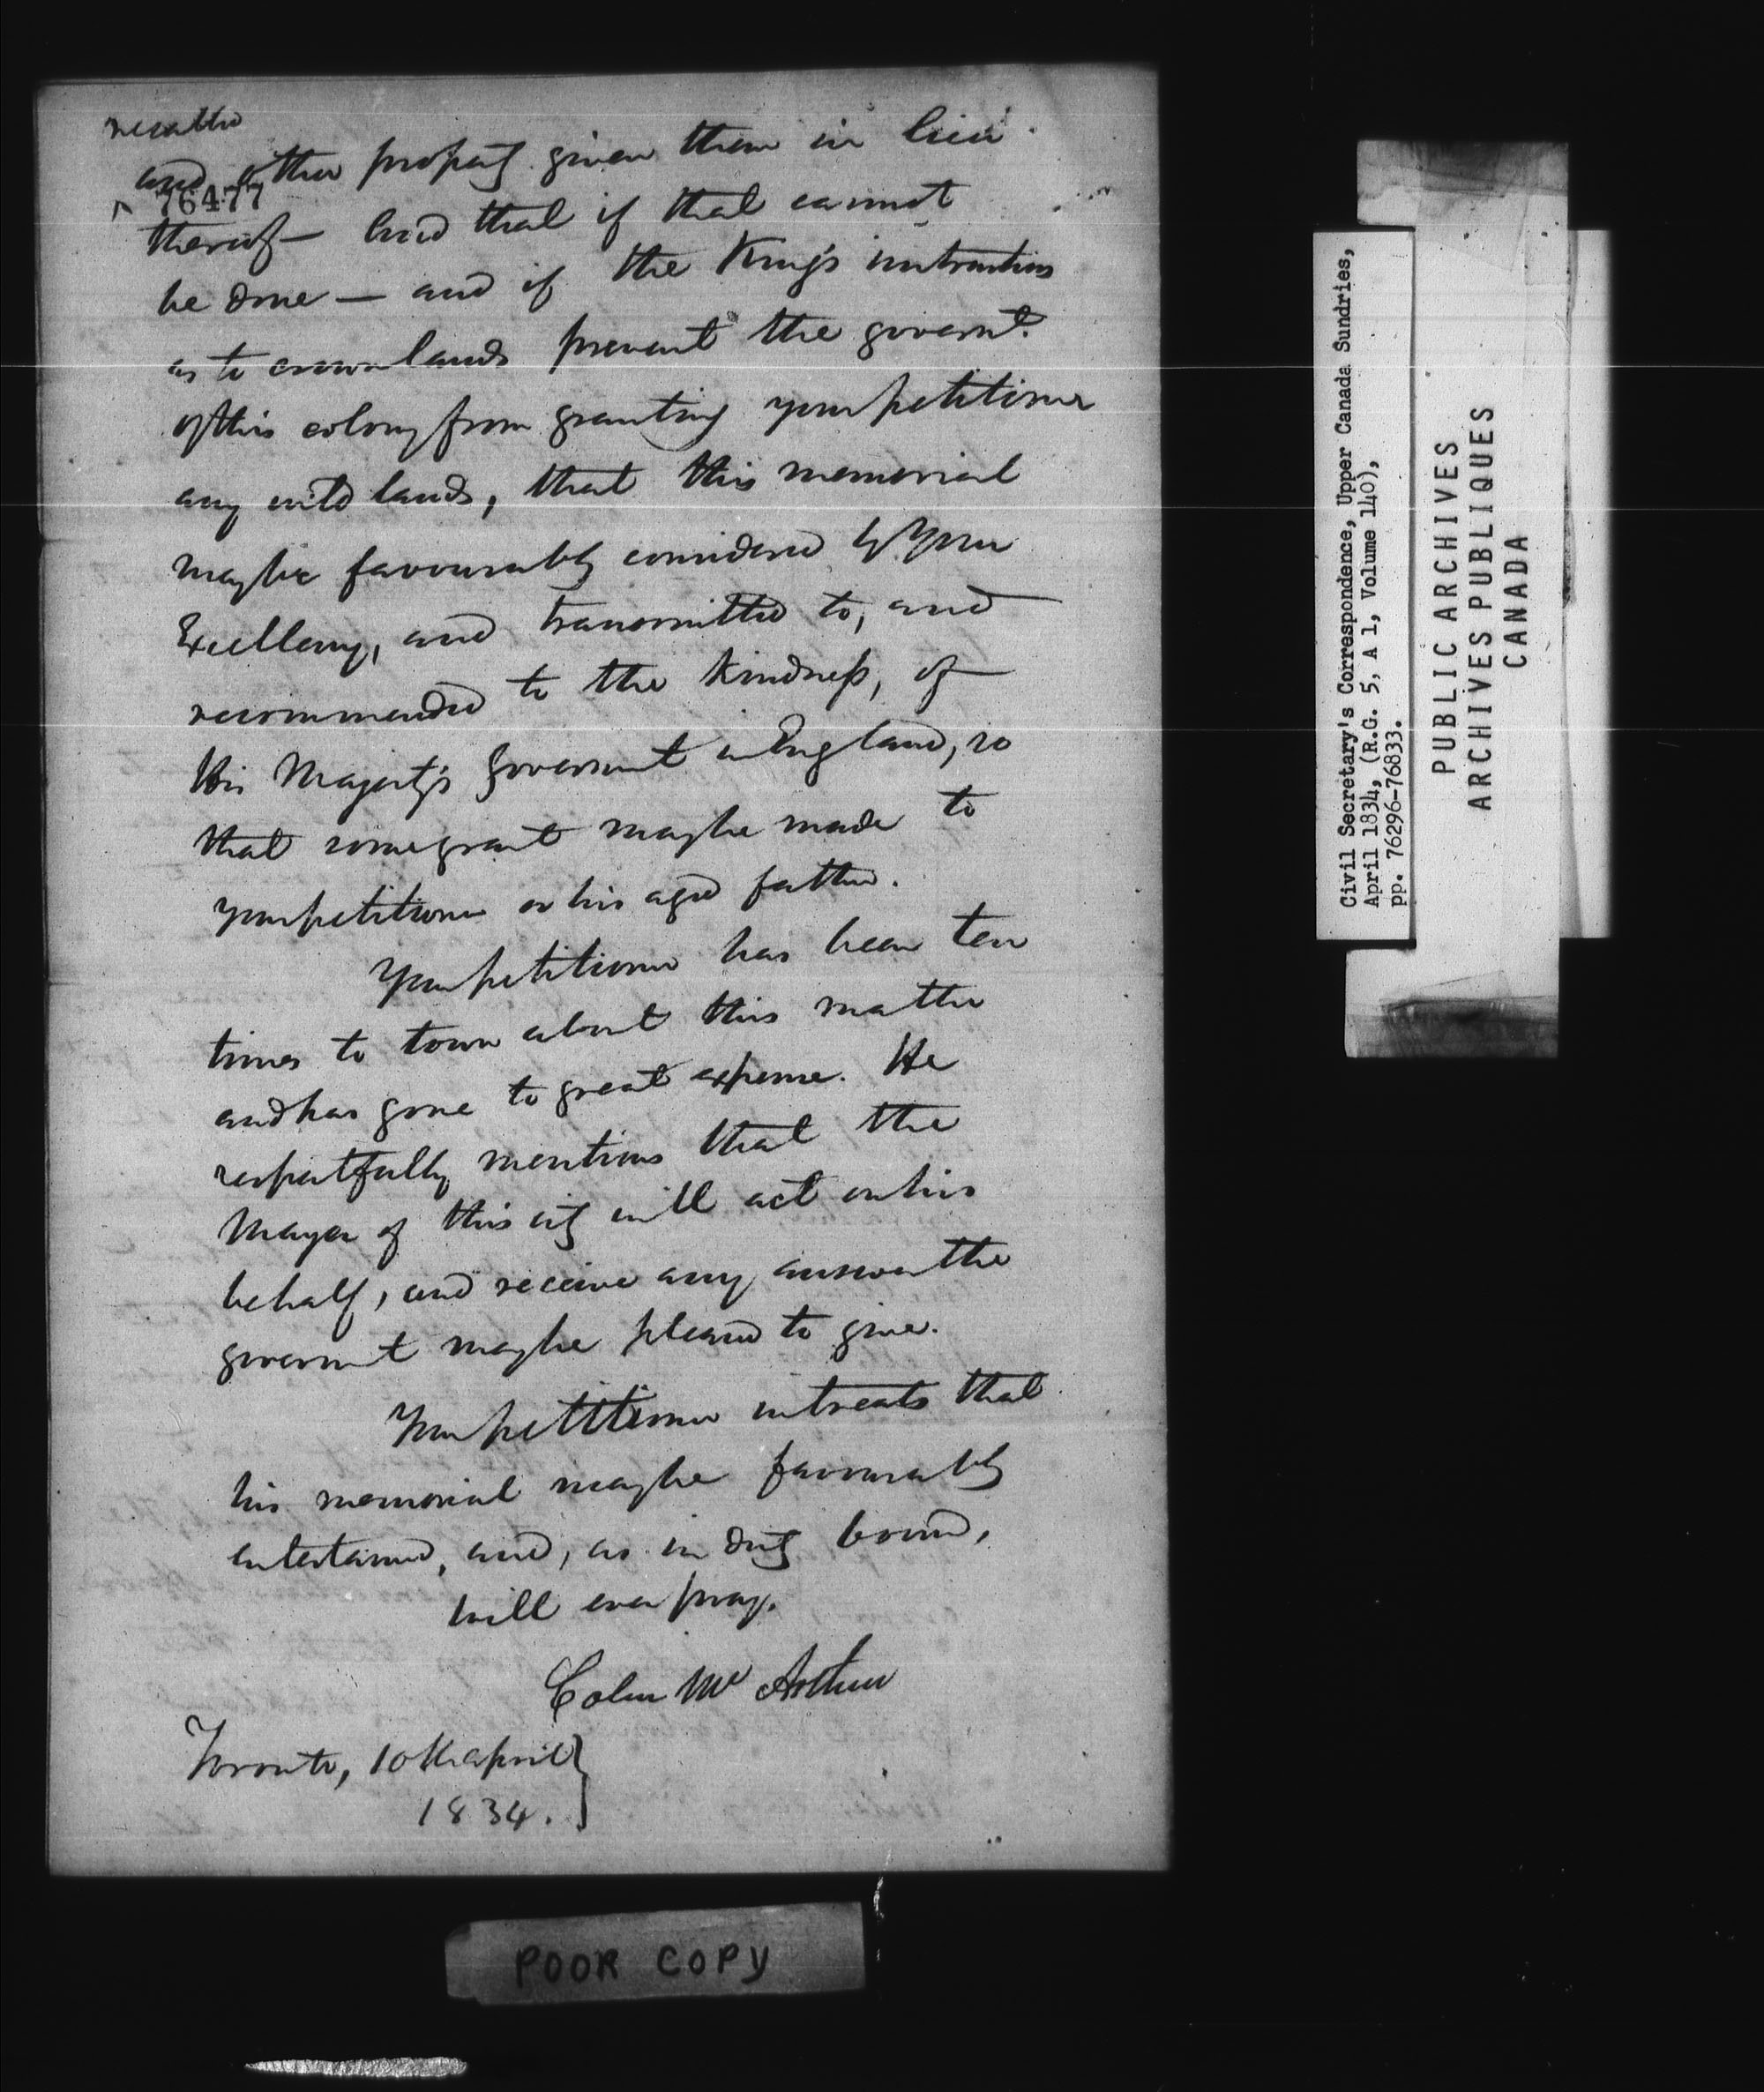 recalled
and other property given them in lieu
^ 76477
thereof — and that if that cannot
be done — and if the King's instructions
as to crown lands prevent the governt.
of this colony from granting your petitioner
any wild lands, that this memorial
may be favourably considered by Your
Excellency, and transmitted to, and
recommended to the kindness, of
His Majesty's Government in England, so
that some grant may be made to
your petitioner or his aged father.
Your petitioner has been ten
times to town about this matter
and has gone to great expense. He
respectfully mentions that the
Mayor of this city will act on his
behalf, and receive any answer the
government may be pleased to give.
Your petitioner intreats that
his memorial may be favourably
entertained, and, as in duty bound,
will ever pray.
Colin Mc Arthur
Toronto, 10th april }
1834.
Civil Secretary's Correspondence, Upper Canada Sundries,
April 1834, (R.G. 5, A 1, Volume 140),
pp. 76296-76833.
PUBLIC ARCHIVES
ARCHIVES PUBLIQUES
CANADA
POOR COPY